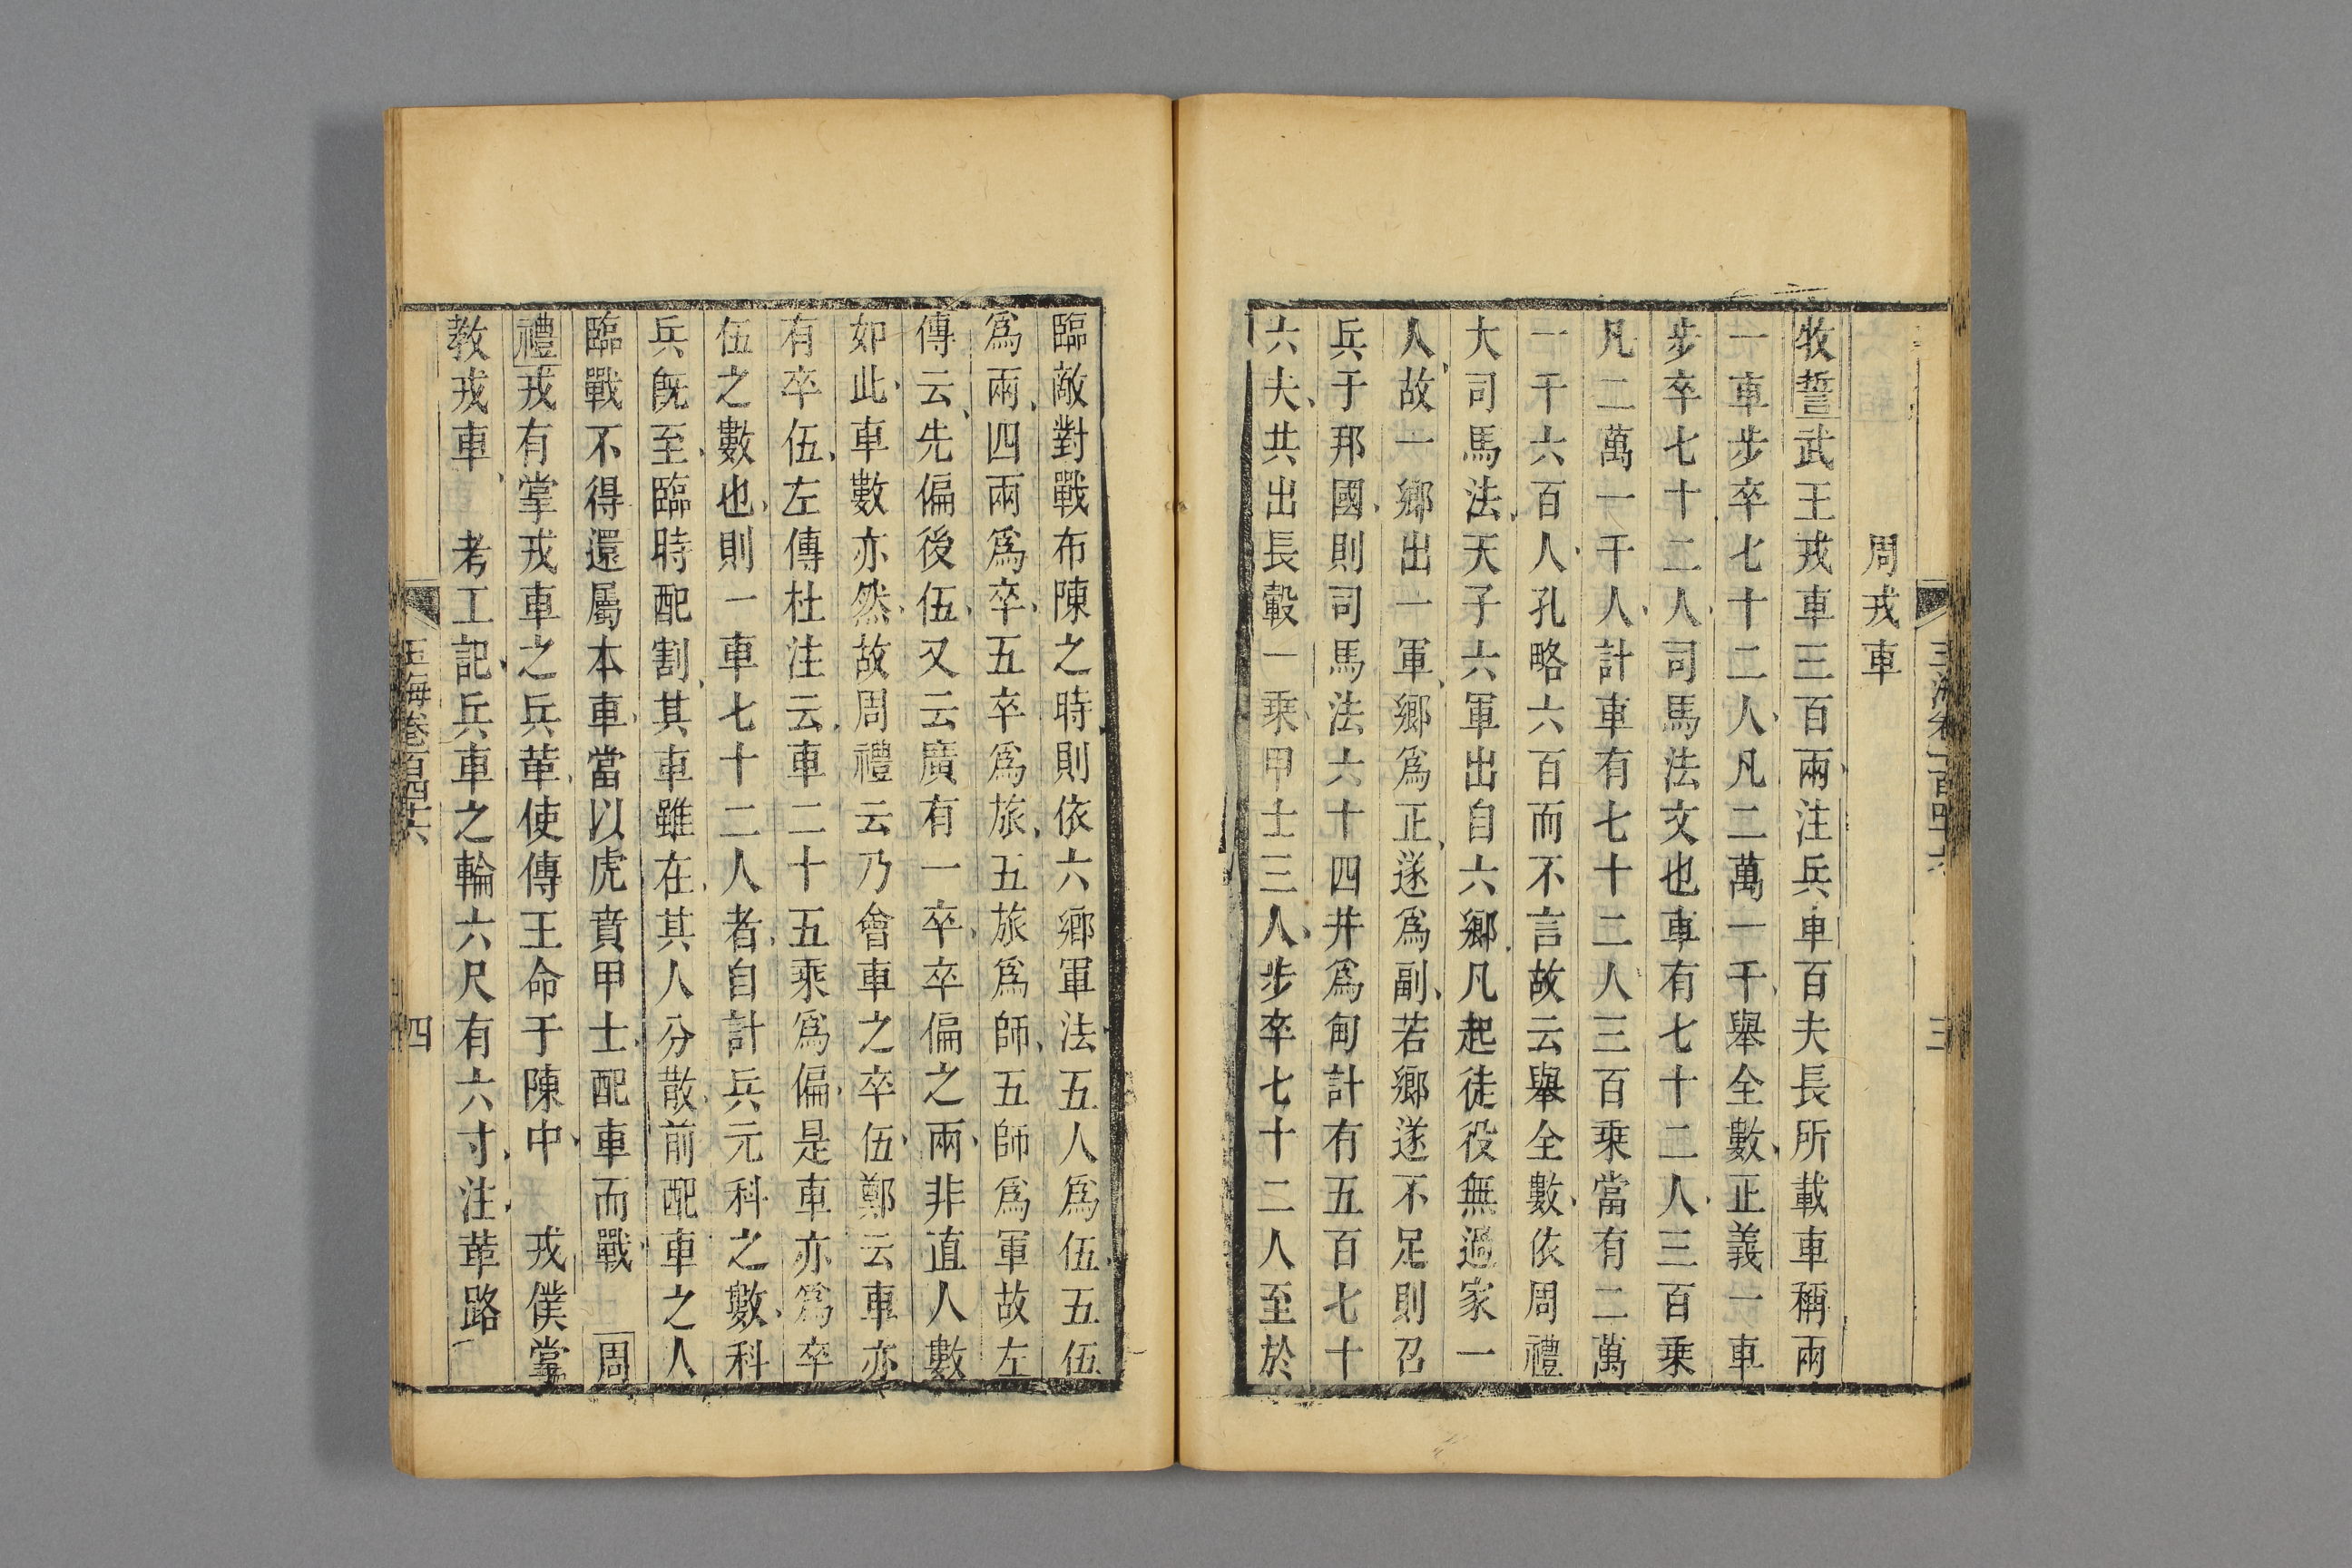 周戎車
牧誓武王戎車三百兩注兵車百夫長所載車稱兩
一車步卒七十二人凡二萬一千舉全數正義一車
步卒七十二人司馬法文也車有七十二人三百乗
凡二萬一千人計車有七十二人三百乗當有二萬
一千六百人孔略六百而不言故云舉全數依周禮
大司馬法天子六軍出自六鄉凡起徒役無過家一
人故一鄉出一軍鄉爲正遂爲副若鄉遂不足則召
兵于邦國則司馬法六十四井爲甸計有五百七十
六夫共出長轂一乗甲士三人步卒七十二人至於
臨敵對戰布陳之時則依六鄉軍法五人爲伍五伍
爲兩四兩爲卒五卒爲旅五旅爲師五師爲軍故左
傳云先偏後伍又云廣有一卒卒偏之兩非直人數
如此車數亦然故周禮云乃會車之卒伍鄭云車亦
有卒伍左傳杜注云車二十五乘爲偏是車亦爲卒
伍之數也則一車七十二人者自計兵元科之數科
兵旣至臨時配割其車雖在其人分散前配車之人
臨戰不得還屬本車當以虎賁甲士配車而戰 周
禮戎有掌戎車之兵革使傳王命于陳中 戎僕掌
敎戎車 考工記兵車之輪六尺有六寸注革路
玉海卷百四十六
四